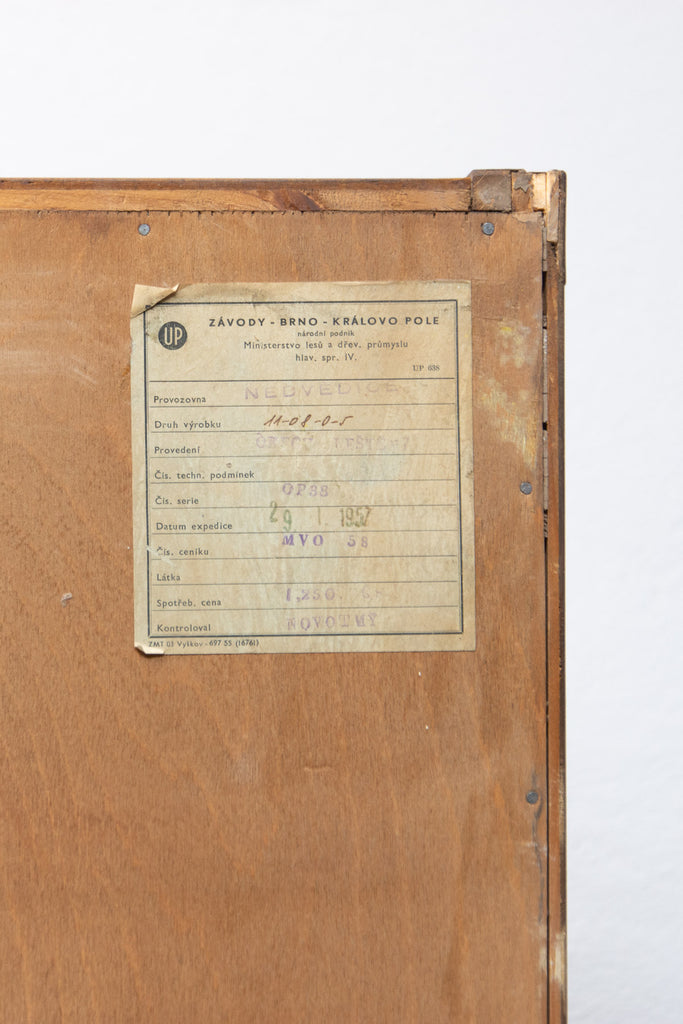 UP
ZÁVODY - BRNO - KRÁLOVO POLE
národní podnik
Ministerstvo lesů a dřev. průmyslu
hlav. spr. IV.
UP 638
Provozovna NEDVĚDICE
Druh výrobku 11-08-0-5
Provedení
Čís. techn. podmínek
Čís. serie OP38
Datum expedice 29 I. 1957
Čís. ceníku MVO 58
Látka
Spotřeb. cena 1,250.
Kontroloval NOVOTNÝ
ZMT 03 Vyškov - 697 55 (16761)